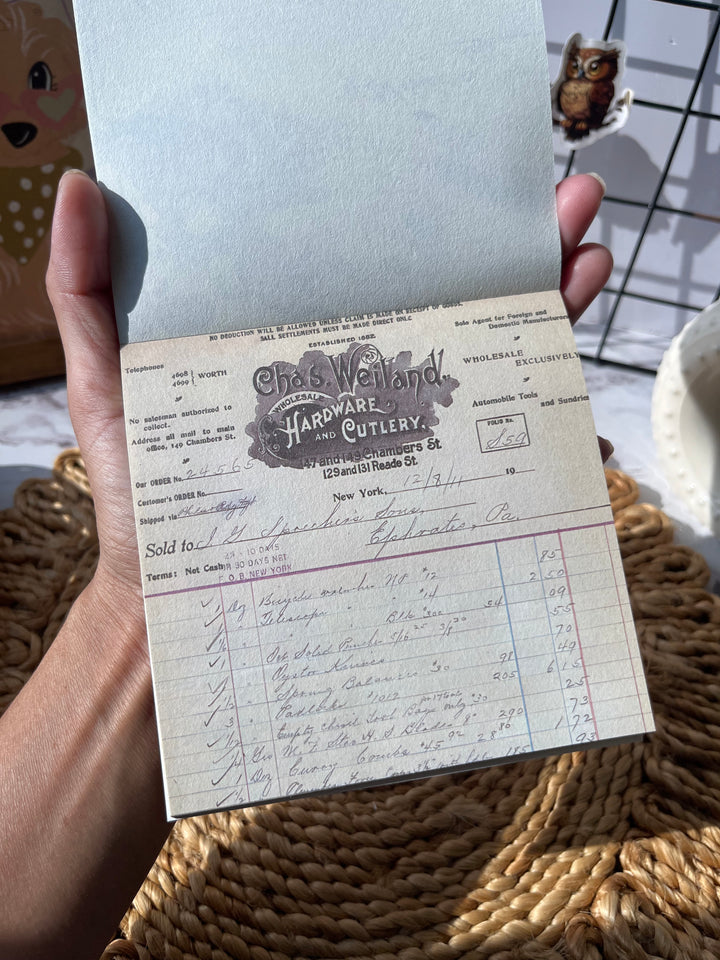 NO DEDUCTION WILL BE ALLOWED UNLESS CLAIM IS MADE ON RECEIPT OF GOODS.
ALL SETTLEMENTS MUST BE MADE DIRECT ONLY
ESTABLISHED 1882
Sole Agent for Foreign and
Domestic Manufacturers
Telephones
4608
4609
WORTH
Chas. Weiland.
WHOLESALE
HARDWARE
AND CUTLERY.
147 and 149 Chambers St.
129 and 131 Reade St.
WHOLESALE
EXCLUSIVELY
No salesman authorized to
collect.
Address all mail to main
office, 149 Chambers St.
Automobile Tools
and Sundries
FOLIO No.
859
Our ORDER No. 24565
Customer's ORDER No.
Shipped via
New York, 12/8/11 19
Sold to J. G. Sons,
Ephrata, Pa.
Terms: Net Cash
10 DAYS
OR 30 DAYS NET
F. O. B. NEW YORK
1 Doz Bicycle No 12 85
1 " Telescope " " #14 2 50
" " " Blk #300 09
" Solid Punches 5/16 3/8 54 55
1 " Oyster Knives 70
" Spring Balances #30 98 49
3 " Padlocks #1012 205 6 15
" Empty Tool Bags only #30 25
Gro M. F. Star H. S Blades 8" 290 73
1 Doz Curry Combs #45 1 72
185 93